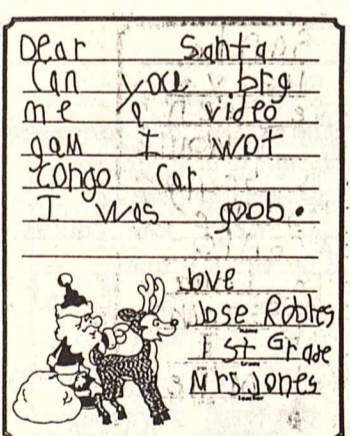 Dear Santa
Can you brg
me a video
gam I wot
congo car
I was goob.
love
Jose Robles
Name
1st Grade
Grade
Mrs. Jones
Teacher